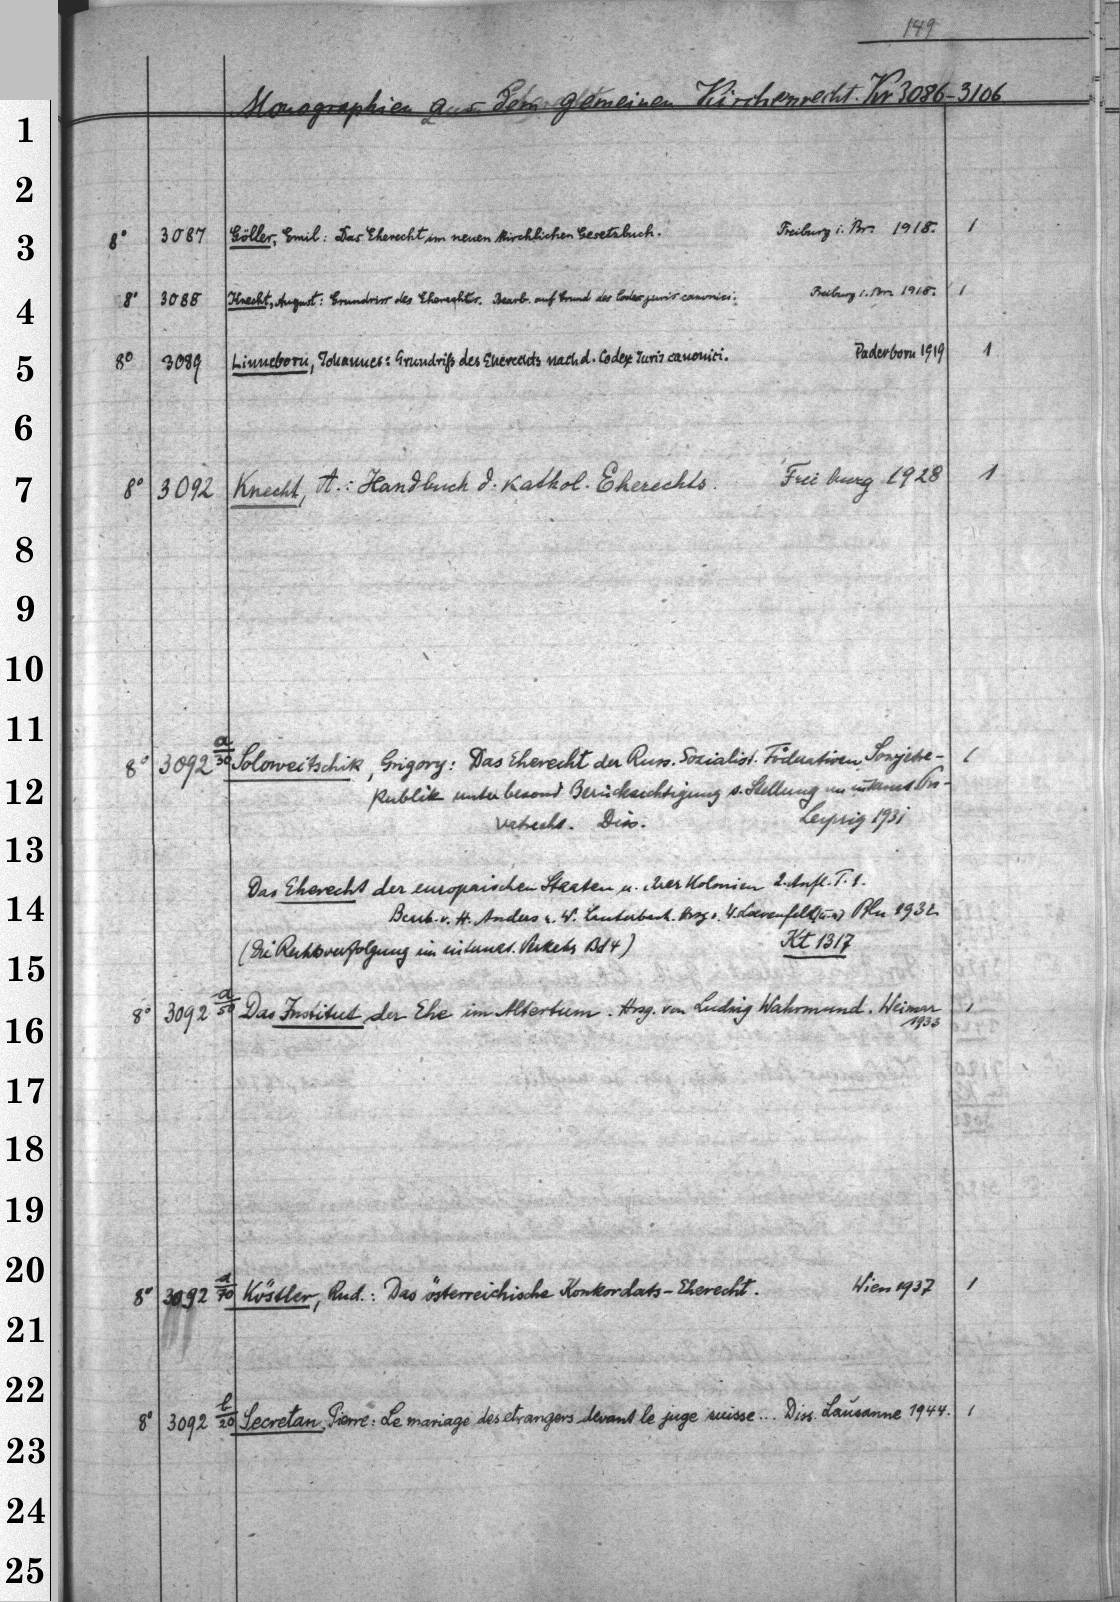 149
Monographien aus dem gemeinen Kirchenrecht. Kr 3086-3106
1
2
3 8° 3087 Göller, Emil: Das Eherecht im neuen kirchlichen Gesetzbuch. Freiburg i. Br. 1918. 1
4 8° 3088 Knecht, August: Grundriss des Eherechts. Bearb. auf Grund des Codex juris canonici. Freiburg i. Br. 1918. 1
5 8° 3089 Linneborn, Johannes: Grundriß des Eherechts nach d. Codex Juris canonici. Paderborn 1919 1
6
7 8° 3092 Knecht, A.: Handbuch d. kathol. Eherechts. Freiburg 1928 1
8
9
10
11
8° 3092 a/30 Soloweitschik, Grigory: Das Eherecht der Russ. Sozialist. Föderativen Sowjetre- 1
12 publik unter besond Berücksichtigung s. Stellung im internat Pri-
13 vatrecht. Diss. Leipzig 1931
Das Eherecht der europäischen Staaten u. ihrer Kolonien 2. Aufl. T. 1.
14 Bearb. v. H. Anders u. W. Lauterbach. Hrsg. v. W. Loewenfeld Bln 1932
15 (Die Rechtsverfolgung im internat. Verkehr Bd 4) Kt 1317
16 8° 3092 a/50 Das Institut der Ehe im Altertum. Hrsg. von Ludwig Wahrmund. Weimar 1
1933
17
18
19
20
8° 3092 a/70 Köstler, Rud.: Das österreichische Konkordats-Eherecht. Wien 1937 1
21
22
8° 3092 b/20 Secretan, Pierre: Le mariage des etrangers devant le juge suisse... Diss. Lausanne 1944. 1
23
24
25